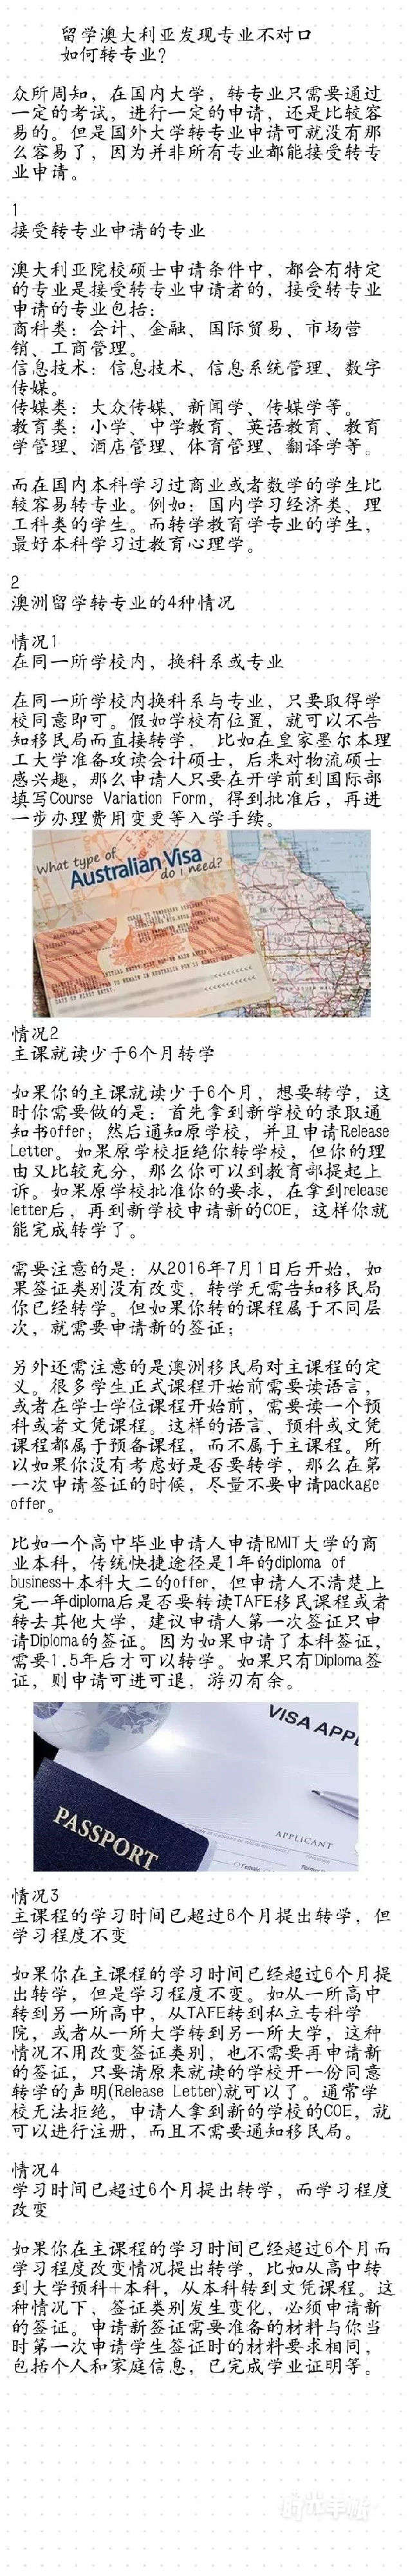 留学澳大利亚发现专业不对口
如何转专业?
众所周知，在国内大学，转专业只需要通过
一定的考试，进行一定的申请，还是比较容
易的。但是国外大学转专业申请可就没有那
么容易了，因为并非所有专业都能接受转专
业申请。
1
接受转专业申请的专业
澳大利亚院校硕士申请条件中，都会有特定
的专业是接受转专业申请者的，接受转专业
申请的专业包括：
商科类：会计、金融、国际贸易、市场营
销、工商管理。
信息技术：信息技术、信息系统管理、数字
传媒。
传媒类：大众传媒、新闻学、传媒学等。
教育类：小学、中学教育、英语教育、教育
学管理、酒店管理、体育管理、翻译学等。
而在国内本科学习过商业或者数学的学生比
较容易转专业。例如：国内学习经济类、理
工科类的学生。而转学教育学专业的学生，
最好本科学习过教育心理学。
2
澳洲留学转专业的4种情况
情况1
在同一所学校内，换科系或专业
在同一所学校内换科系与专业，只要取得学
校同意即可。假如学校有位置，就可以不告
知移民局而直接转学， 比如在皇家墨尔本理
工大学准备攻读会计硕士，后来对物流硕士
感兴趣，那么申请人只要在开学前到国际部
填写Course Variation Form，得到批准后，再进
一步办理费用变更等入学手续。
What type of
Australian Visa
do I need?
情况2
主课就读少于6个月转学
如果你的主课就读少于6个月，想要转学，这
时你需要做的是：首先拿到新学校的录取通
知书offer；然后通知原学校，并且申请Release
Letter。如果原学校拒绝你转学校，但你的理
由又比较充分，那么你可以到教育部提起上
诉。如果原学校批准你的要求，在拿到release
letter后，再到新学校申请新的COE，这样你就
能完成转学了。
需要注意的是：从2016年7月1日后开始，如
果签证类别没有改变，转学无需告知移民局
你已经转学。但如果你转的课程属于不同层
次，就需要申请新的签证；
另外还需注意的是澳洲移民局对主课程的定
义。很多学生正式课程开始前需要读语言，
或者在学士学位课程开始前，需要读一个预
科或者文凭课程。这样的语言、预科或文凭
课程都属于预备课程，而不属于主课程。所
以如果你没有考虑好是否要转学，那么在第
一次申请签证的时候，尽量不要申请package
offer。
比如一个高中毕业申请人申请RMIT大学的商
业本科，传统快捷途径是1年的diploma of
business+本科大二的offer，但申请人不清楚上
完一年diploma后是否要转读TAFE移民课程或者
转去其他大学，建议申请人第一次签证只申
请Diploma的签证。因为如果申请了本科签证，
需要1.5年后才可以转学。如果只有Diploma签
证，则申请可进可退，游刃有余。
VISA APPL
PASSPORT
APPLICANT
情况3
主课程的学习时间已超过6个月提出转学，但
学习程度不变
如果你在主课程的学习时间已经超过6个月提
出转学，但是学习程度不变。如从一所高中
转到另一所高中，从TAFE转到私立专科学
院，或者从一所大学转到另一所大学，这种
情况不用改变签证类别，也不需要再申请新
的签证，只要请原来就读的学校开一份同意
转学的声明(Release Letter)就可以了。通常学
校无法拒绝，申请人拿到新的学校的COE，就
可以进行注册，而且不需要通知移民局。
情况4
学习时间已超过6个月提出转学，而学习程度
改变
如果你在主课程的学习时间已经超过6个月而
学习程度改变情况提出转学，比如从高中转
到大学预科+本科，从本科转到文凭课程。这
种情况下，签证类别发生变化，必须申请新
的签证。申请新签证需要准备的材料与你当
时第一次申请学生签证时的材料要求相同，
包括个人和家庭信息，已完成学业证明等。
时光手帐